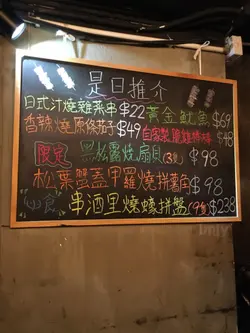 是日推介
日式汁燒雜菜串$22 黃金魷魚$69
香辣燒原條茄子$49 自家製雞鎚棒棒$48
限定 黑松露燒扇貝(3隻)$98
松葉蟹蓋甲羅燒拼薯角$98
必食 串酒里燒蠔拼盤(9隻)$238